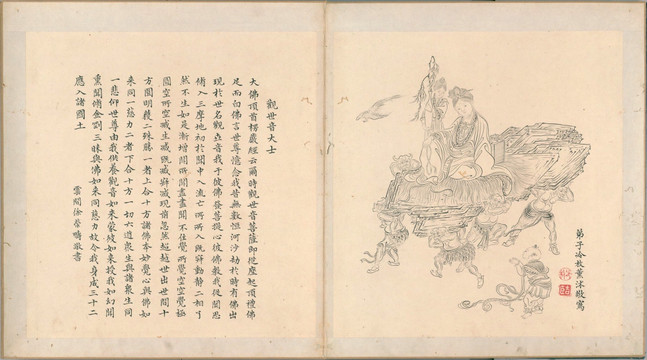 弟子冷枚薰沐敬寫
觀世音大士
大佛頂首楞嚴經云爾時觀世音菩薩即從座起頂禮佛
足而白佛言世尊憶念我昔無數恒河沙劫於時有佛出
現於世名觀世音我于彼佛發菩提心彼佛教我從聞思
脩入三摩地初於聞中入流亡所所入既寂動靜二相了
然不生如是漸增聞所聞盡盡聞不住覺所覺空空覺極
圓空所空滅生滅既滅寂滅現前忽然超越世出世間十
方圓明獲二殊勝一者上合十方諸佛本妙覺心與佛如
來同一慈力二者下合十方一切六道眾生與諸眾生同
一悲仰世尊由我供養觀音如來蒙彼如來授我如幻聞
熏聞脩金剛三昧與佛如來同慈力故令我身成三十二
應入諸國土
雲間徐敬書